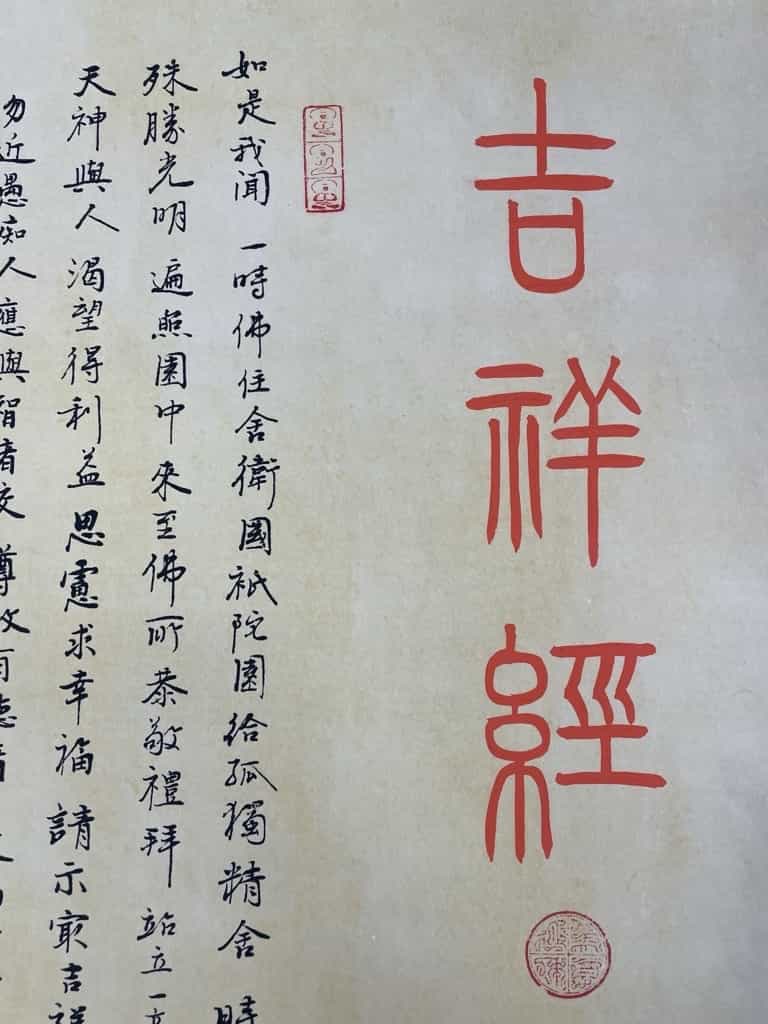 吉祥經
如是我聞 一時佛住舍衛國祇陀園給孤獨精舍 時
殊勝光明遍照園中來至佛所恭敬禮拜 站立一
天神與人 渴望得利益 思慮求幸福 請示最吉祥
勿近愚痴人應與智者交 尊敬有德者